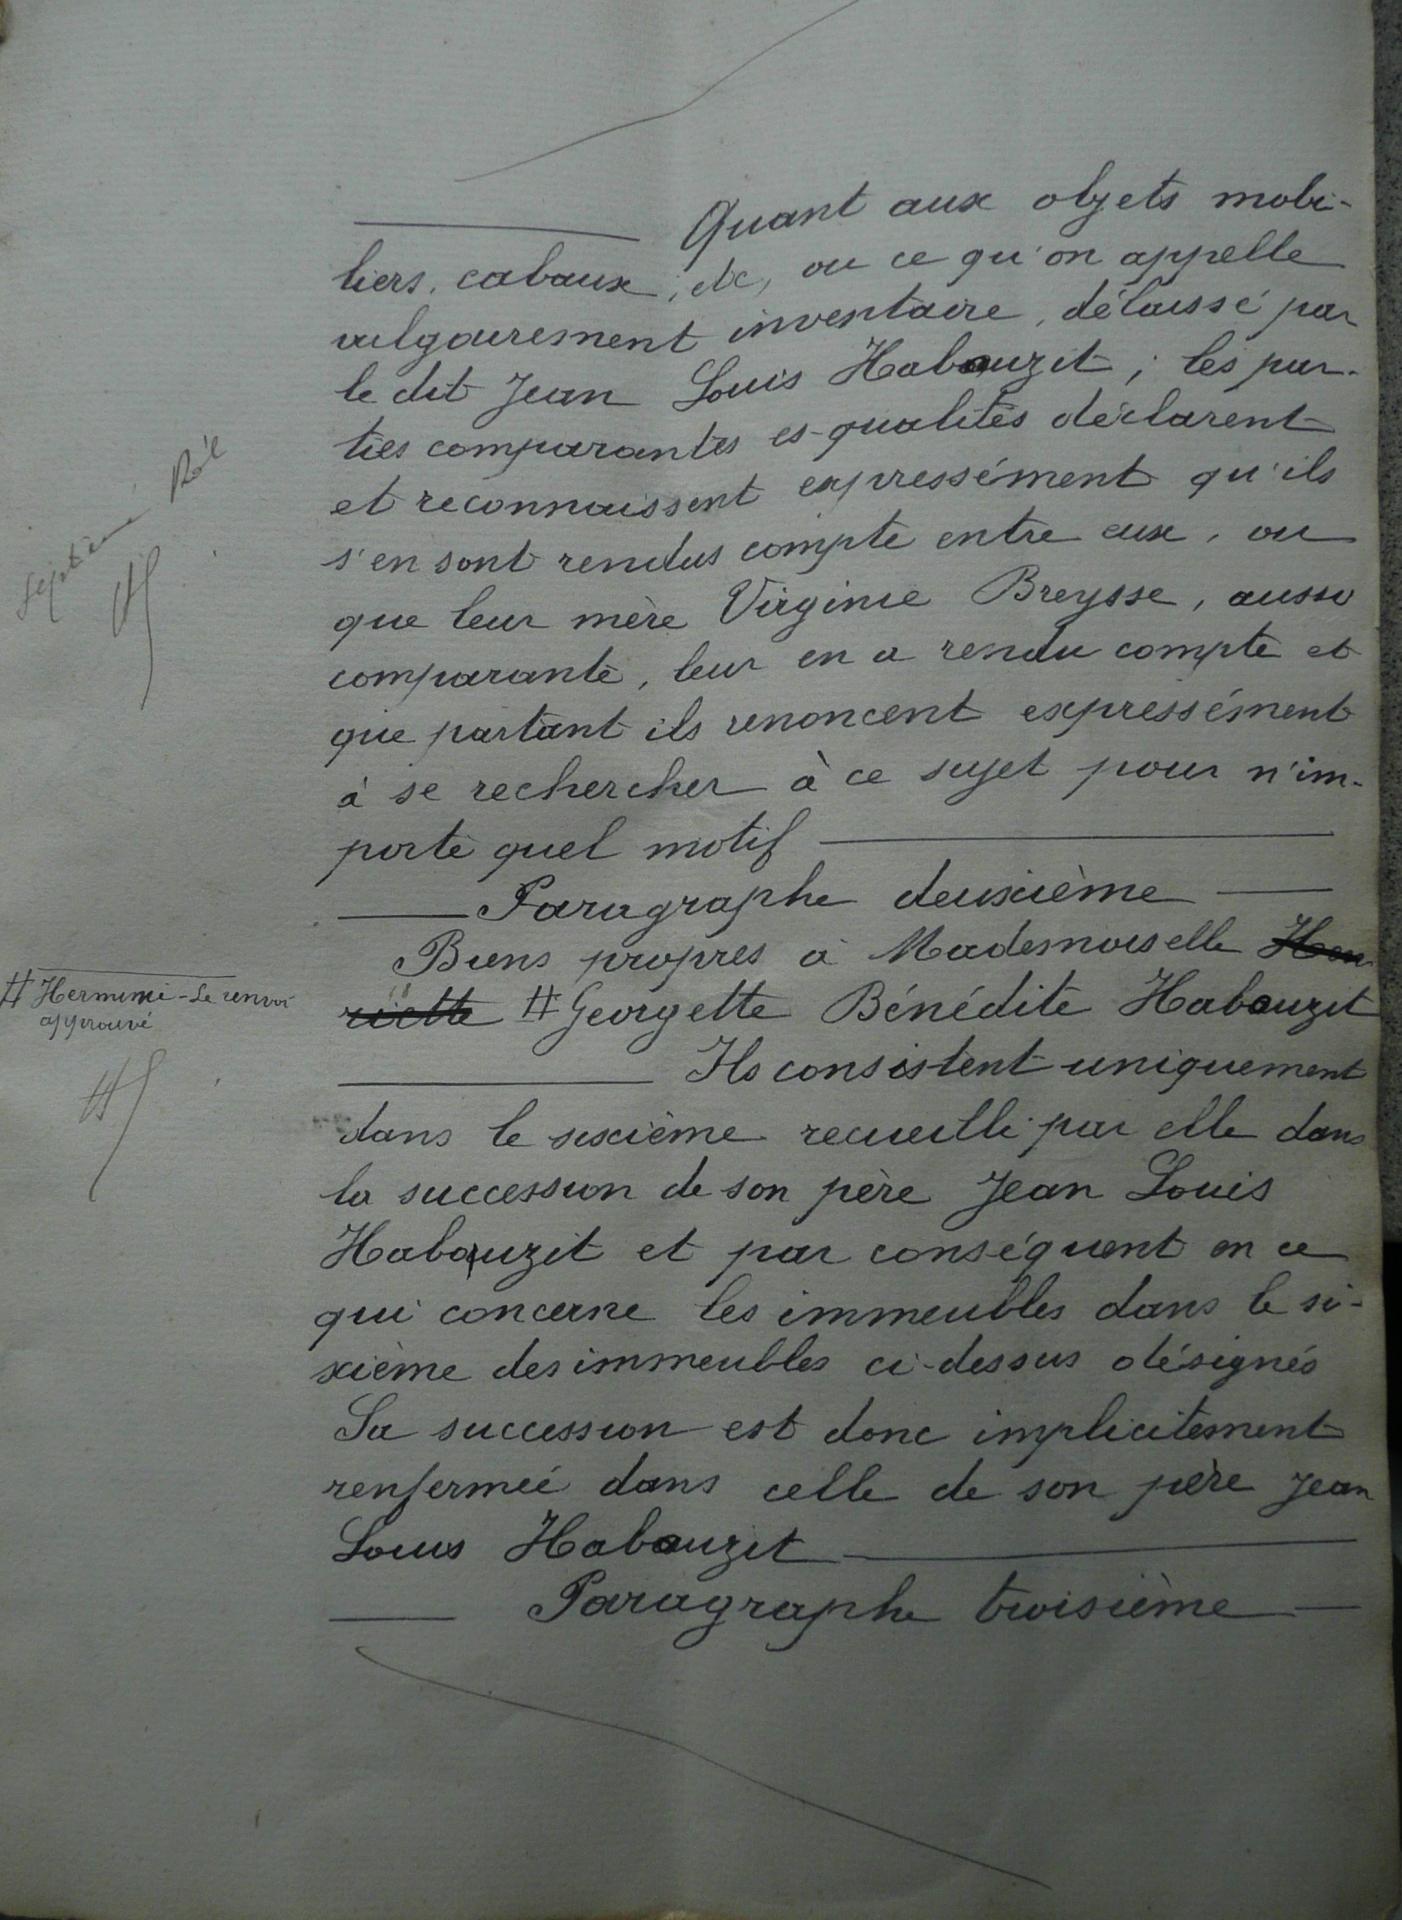 Quant aux objets mobi-
liers, cabaux, etc, ou ce qu'on appelle
vulgairement inventaire, délaissé par
le dit Jean Louis Habauzit ; les par-
ties comparantes es-qualités déclarent
et reconnaissent expressément qu'ils
s'en sont rendus compte entre eux, ou
que leur mère Virginie Breysse, aussi
comparante, leur en a rendu compte et
que partant ils renoncent expressément
à se rechercher à ce sujet pour n'im-
porte quel motif
Septième Rôle
Paragraphe deuxième
Biens propres à Mademoiselle Hen
riette # Georgette Bénédite Habauzit
# Herminie - Le renvoi
approuvé
Ils consistent uniquement
dans le sixième recueilli par elle dans
la succession de son père Jean Louis
Habauzit et par conséquent en ce
qui concerne les immeubles dans le si-
xième des immeubles ci-dessus désignés
Sa succession est donc implicitement
renfermée dans celle de son père Jean
Louis Habauzit
Paragraphe troisième